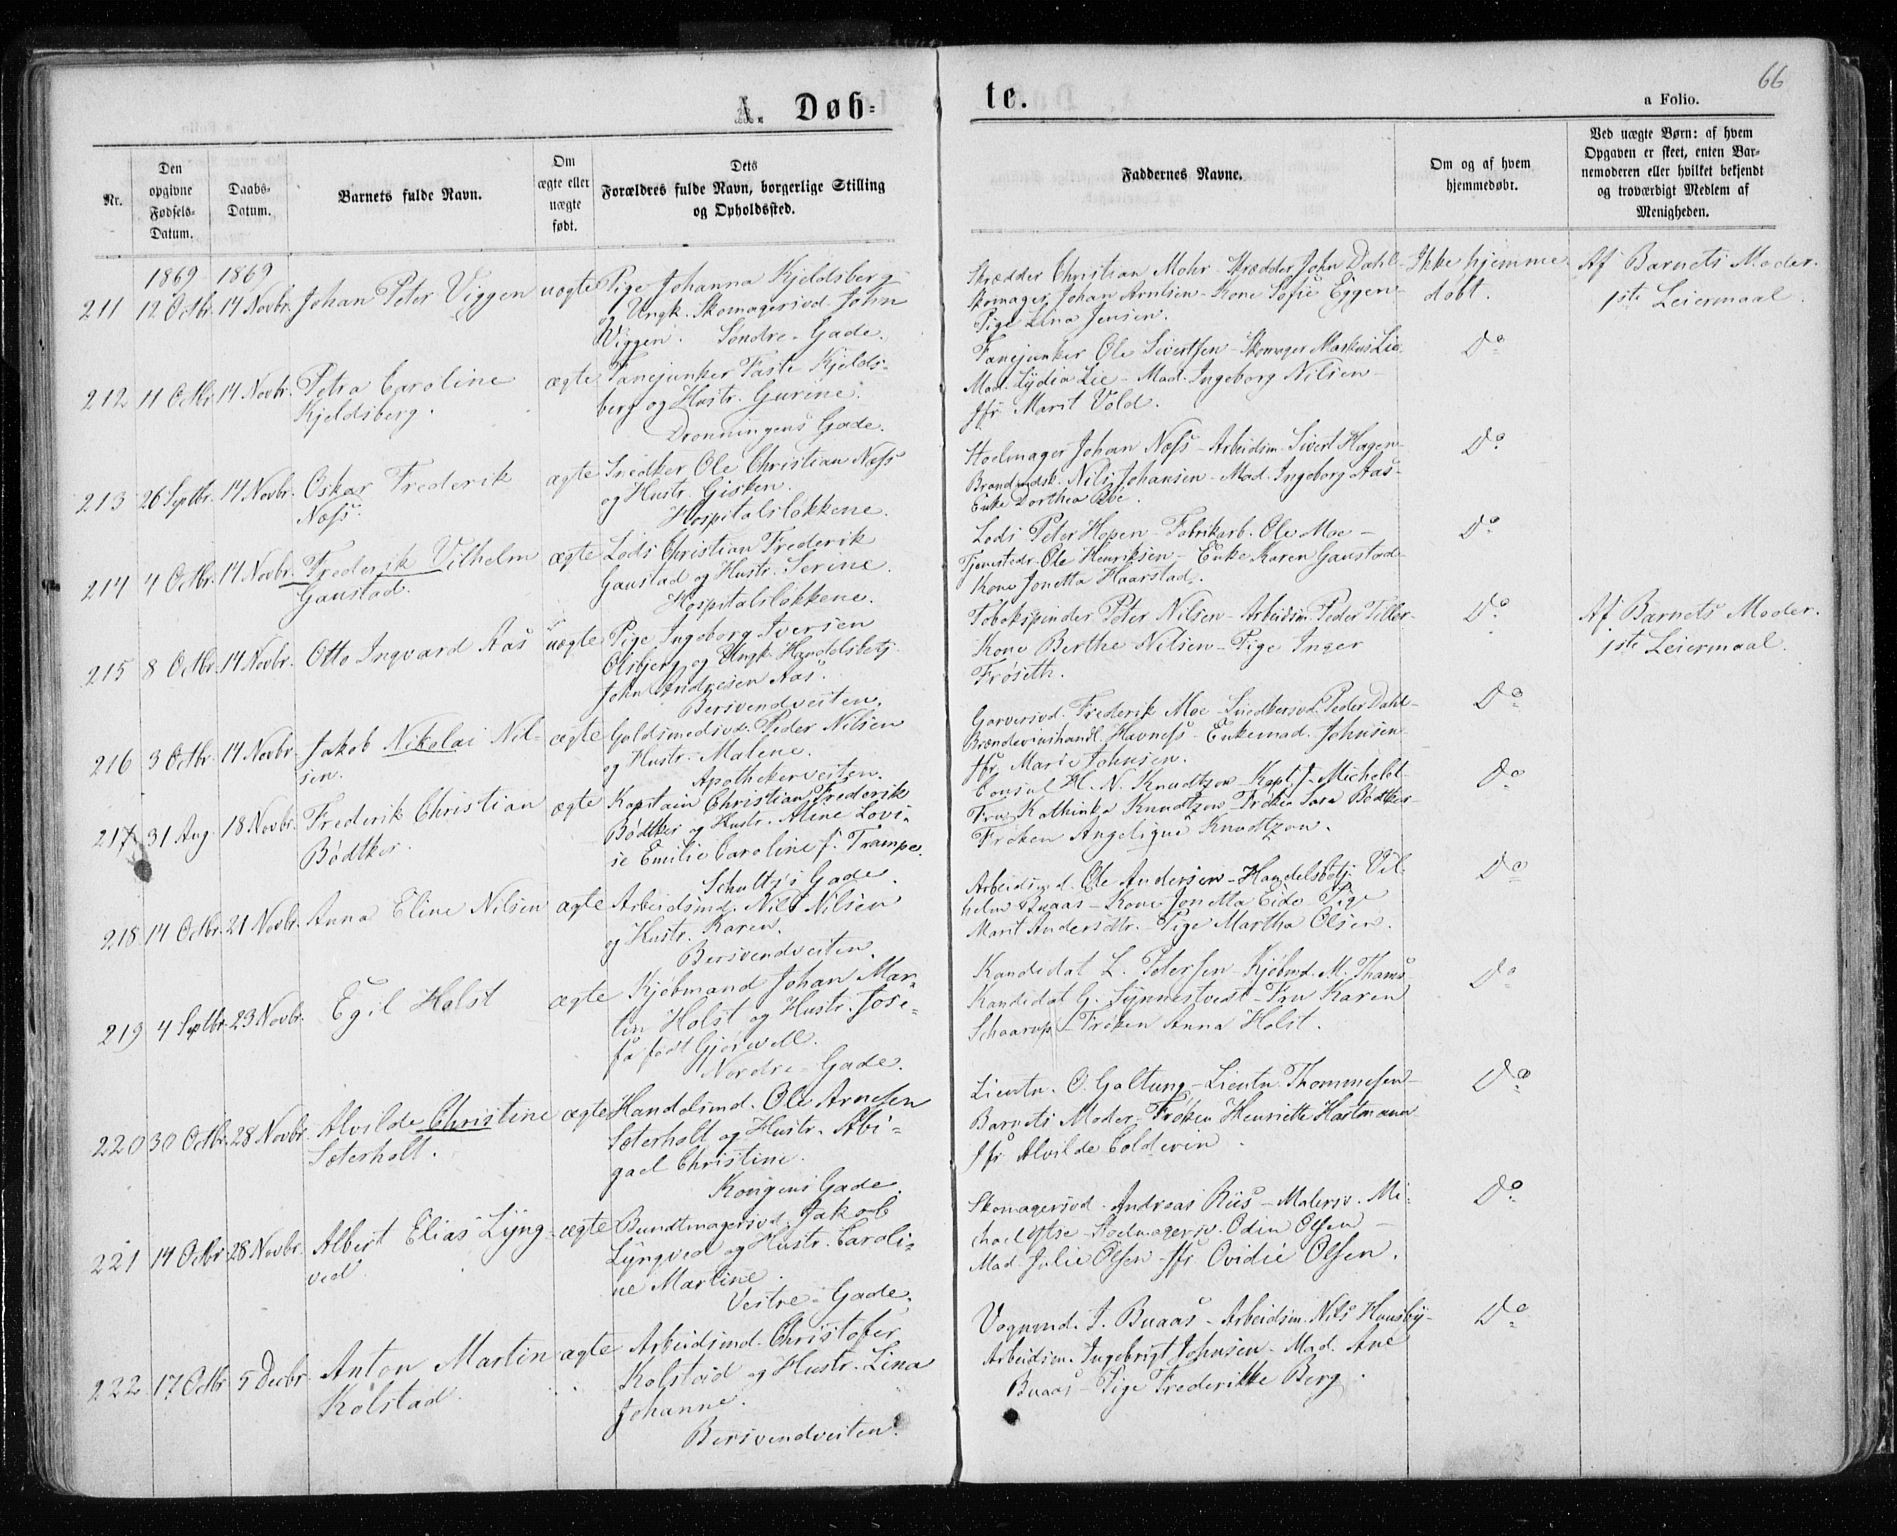 66
A. Døb-
te.
a Folio.
Nr.
Den opgivne Fødsels-Datum.
Daabs-Datum.
Barnets fulde Navn.
Om ægte eller uægte født.
Dets Forældres fulde Navn, borgerlige Stilling og Opholdssted.
Faddernes Navne.
Om og af hvem hjemmedøbt.
Ved uægte Børn: af hvem Opgaven er skeet, enten Barnemoderen eller hvilket bekjendt og troværdigt Medlem af Menigheden.
1869 1869
211 12 Octbr. 14 Novbr. Johan Peter Viggen uægte Pige Johanna Kjeldsberg
og Ungk. Skomagersvd. John
Viggen. Søndre-Gade.
Skrædder Christian Mohr - Skrædder John Dahl-
Skomager Johan Arntsen - Kone Sofie Eggen-
Pige Lina Jensen.
Ikke hjemme
døbt.
Af Barnets Moder.
1ste Leiermaal.
212 11 Octbr. 14 Novbr. Petra Caroline
Kjeldsberg.
ægte Fanejunker Faste Kjelds-
berg og Hustr. Gurine.
Dronningens Gade.
Fanejunker Ole Sivertsen - Skomager Markus Lie.
Mad. Lydia Lie - Mad. Ingeborg Nilsen -
Jfr. Marit Vold.
Do
213 26 Septbr. 14 Novbr. Oskar Frederik
Næss.
ægte Snedker Ole Christian Næss
og Hustr. Gisken.
Hospitalsløkkene.
Stolmager Johan Næss - Arbeidsm. Sivert Hagen-
Brandvdsk. Nils Johansen - Mad. Ingeborg Aas-
Enke Dorthea Roe.
Do
214 4 Octbr. 14 Novbr. Frederik Vilhelm
Gaustad.
ægte Lods Christian Frederik
Gaustad og Hustr. Serine.
Hospitalsløkkene.
Lods Peter Hopen - Fabrikarb. Ole Moe -
Tjenestedr. Ole Henriksen - Enke Karen Gaustad-
Kone Jonetta Haarstad.
Do
215 8 Octbr. 14 Novbr. Otto Ingvard Aas uægte Pige Ingeborg Iversen
Olsbjerg og Ungk. Handelsbetj.
John Andresen Aas.
Bersvendveiten.
Tobakspinder Peter Nilsen - Arbeidsm. Peder Tiller-
Kone Berthe Nilsen - Pige Inger
Frøseth.
Do
Af Barnets Moder.
1ste Leiermaal.
216 3 Octbr. 14 Novbr. Jakob Nikolai Nil-
sen.
ægte Guldsmedsvd. Peder Nilsen
og Hustr. Malene.
Apothekerveiten.
Garversvd. Frederik Moe - Snedkersvd. Peder Dahl-
Brændevinshandl. Havness - Enkemad. Johnsen
Jfr. Marie Johnsen.
Do
217 31 Aug. 18 Novbr. Frederik Christian
Bødtker.
ægte Kaptain Christian Frederik
Bødtker og Hustr. Aline Lovi-
se Emilie Caroline f. Trampe.
Schultz's Gade.
Consul H. N. Knudtzon - Kapt. J. Michelet-
Fru Kathinka Knudtzon - Frøken Sara Bødtker-
Frøken Angelique Knudtzon.
Do
218 14 Octbr. 21 Novbr. Anna Eline Nilsen ægte Arbeidsmd. Nils Nilsen
og Hustr. Karen.
Bersvendveiten.
Arbeidsmd. Ole Andersen - Handelsbetj. Vil-
helm Buaas - Kone Jonetta Eide Pige
Marit Andersdtr. Pige Martha Olsen.
Do
219 4 Septbr. 23 Novbr. Egil Holst ægte Kjøbmand Johan Mar-
tin Holst og Hustr. Jose-
fa født Gjørwell.
Nordre-Gade.
Kandidat L. Petersen - Kjøbmd. M. Thams
Kandidat G. Synnestvedt - Fru Karen
Schaarup - Frøken Anna Holst.
Do
220 30 Octbr. 28 Novbr. Alvilde Christine
Sæterholt.
ægte Handelsmd. Ole Arnesen
Sæterholt og Hustr. Abi-
gael Christine.
Kongens Gade.
Lieutn. O. Galtung - Lieutn. Thommesen-
Barnets Moder, Frøken Henriette Hartmann
Jfr. Alvilde Coldevin.
Do
221 14 Octbr. 28 Novbr. Albert Elias Lyng-
ved
ægte Bundtmagersvd. Jakob
Lyngved og Hustr. Caroli-
ne Martine.
Vestre-Gade.
Skomagersvd. Andreas Riis - Malersv. Mi-
chael Ytse - Stolmagersv. Odin Olsen -
Mad. Julie Olsen - Jfr. Ovidie Olsen.
Do
222 17 Octbr. 5 Decbr. Anton Martin
Kolstad.
ægte Arbeidsmd. Christofer
Kolstad og Hustr. Lina
Johanne.
Bersvendveiten.
Vognmd. J. Buaas - Arbeidsm. Nils Hansby-
Arbeidsm. Ingebrigt Johnsen - Mad. Ane
Buaas - Pige Frederikke Berg.
Do